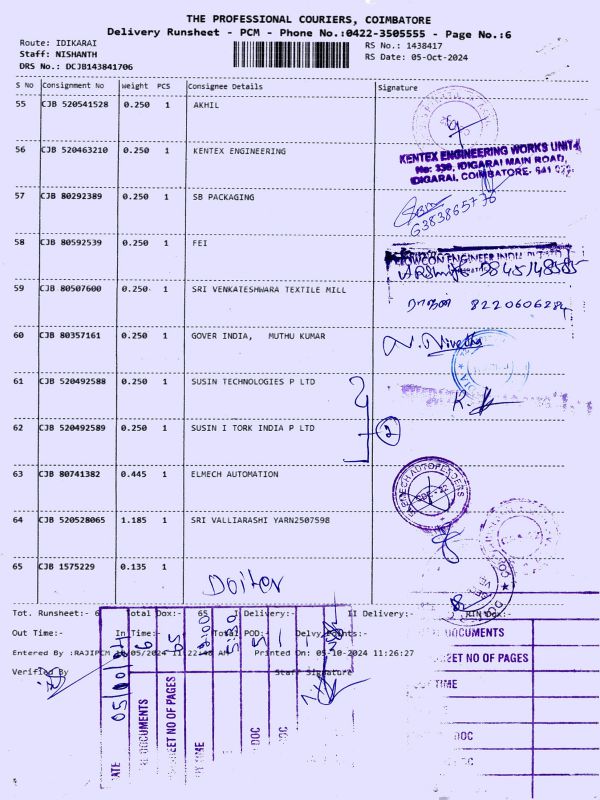 THE PROFESSIONAL COURIERS, COIMBATORE
Delivery Runsheet - PCM - Phone No.:0422-3505555 - Page No.:6
Route: IDIKARAI
RS No.: 1438417
Staff: NISHANTH
RS Date: 05-Oct-2024
DRS No.: DCJB143841706
S No Consignment No Weight PCS Consignee Details Signature
55 CJB 520541528 0.250 1 AKHIL
56 CJB 520463210 0.250 1 KENTEX ENGINEERING
KENTEX ENGINEERING WORKS UNIT
IDIGARAI MAIN ROAD,
IDIGARAI, COIMBATORE-
57 CJB 80292389 0.250 1 SB PACKAGING
6383865778
58 CJB 80592539 0.250 1 FEI
9845148585
59 CJB 80507600 0.250 1 SRI VENKATESHWARA TEXTILE MILL
8220606284
60 CJB 80357161 0.250 1 GOVER INDIA, MUTHU KUMAR
N. Nivetha
61 CJB 520492588 0.250 1 SUSIN TECHNOLOGIES P LTD
62 CJB 520492589 0.250 1 SUSIN I TORK INDIA P LTD
2
63 CJB 80741382 0.445 1 ELMECH AUTOMATION
64 CJB 520528065 1.185 1 SRI VALLIARASHI YARN2507598
65 CJB 1575229 0.135 1
Tot. Runsheet:- 6 Total Dox:- 65 Delivery:- II Delivery:-
Out Time:- In Time:- Total POD:- Delvy Points:-
Entered By :RAJIPCM Printed On: 05-10-2024 11:26:27
Verified By Staff Signature
DOCUMENTS
SHEET NO OF PAGES
TIME
DOC
DOCUMENTS
EET NO OF PAGES
TIME
DOC